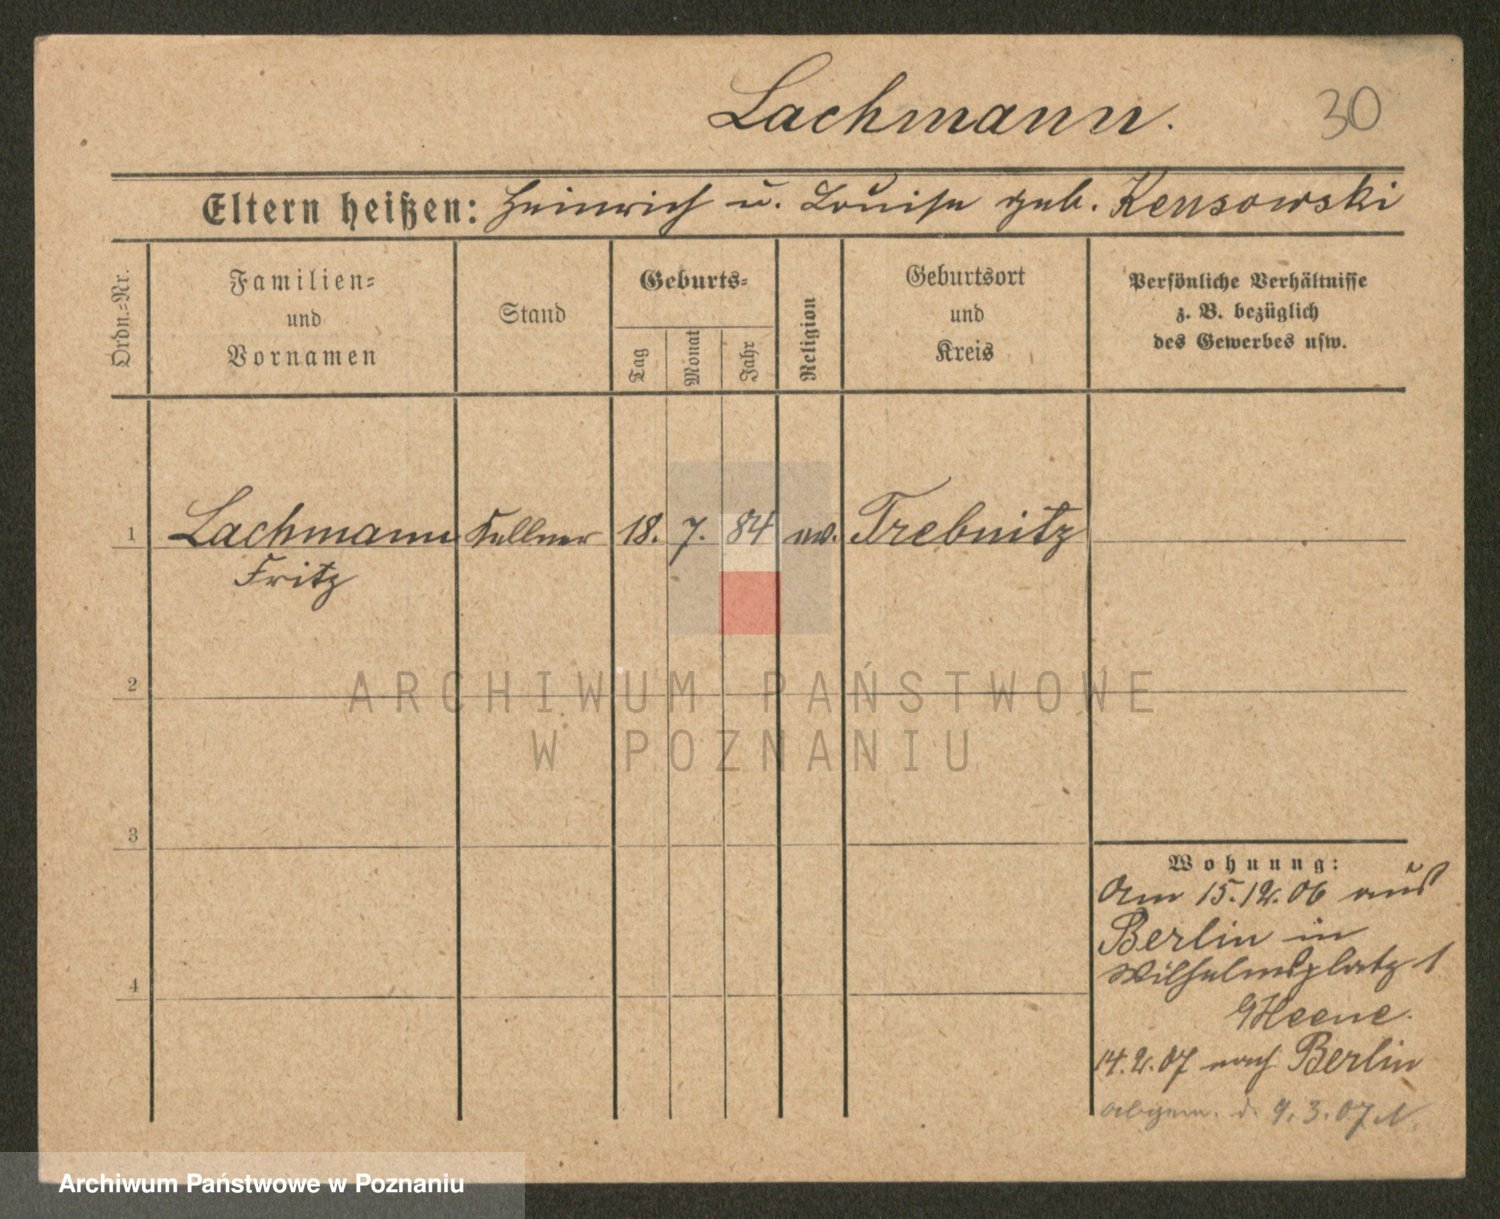 Lachmann.
30
Eltern heißen: Heinrich u. Louise geb. Kensowski
Ordn.-Nr.
Familien-
und
Vornamen
Stand
Geburts-
Tag
Monat
Jahr
Religion
Geburtsort
und
Kreis
Persönliche Verhältnisse
z. B. bezüglich
des Gewerbes usw.
1 Lachmann Kellner 18. 7. 84 ev. Trebnitz
Fritz
2
3
4
Wohnung:
Am 15.12.06 aus
Berlin in
Wilhelmsplatz 1
Heene.
14.2.07 nach Berlin
abgem. d. 9.3.07
ARCHIWUM PAŃSTWOWE
W POZNANIU
Archiwum Państwowe w Poznaniu